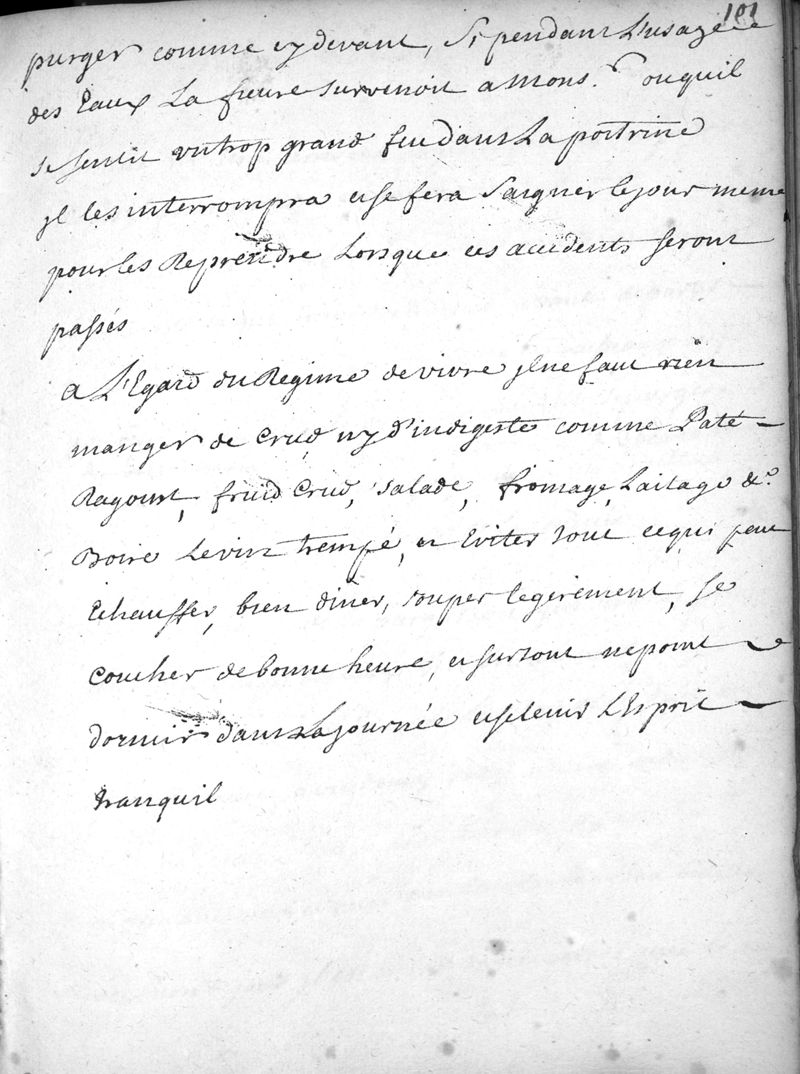 101
purger comme cy devant, Si pendant L'usage
des Eaux La fievre survenoit a Mons.r ou quil
se sentit un trop grand feu dans La poitrine
jl les interrompra et se fera Saigner le jour meme
pour les Reprendre Lorsque ces accidents seront
passés
a L'Egard du Regime de vivre jl ne faut rien
manger de Crud ny d'indigeste comme Paté
Ragoust, fruid Crud, salade, fromage, Laitage &c.
Boire Le vin trempé, et Eviter tout ce qui peut
Echauffer, bien diner, souper legerement, se
Coucher de bonne heure, et surtout ne point
dormir dans La journée et se tenir L'Esprit
tranquil